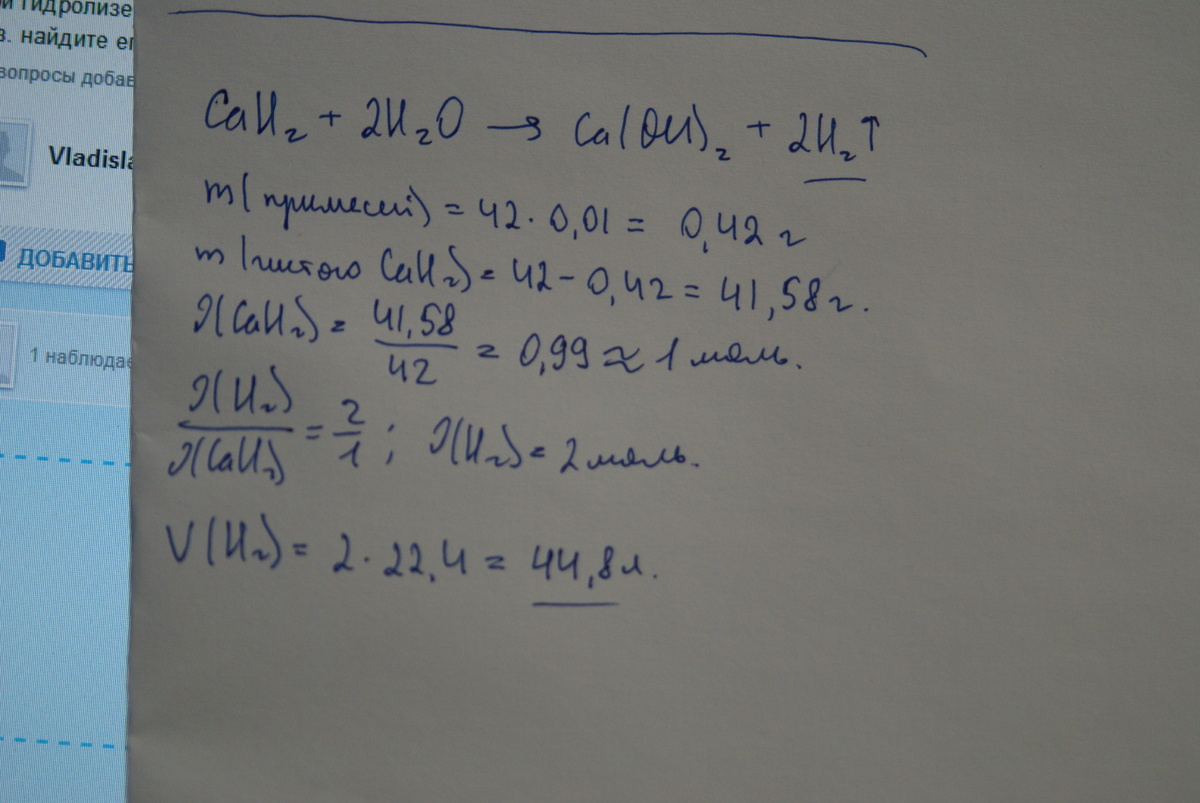 и гидролизе
в. найдите ег
вопросы добав
Vladisla
ДОБАВИТЬ
1 наблюдае
CaH₂ + 2H₂O → Ca(OH)₂ + 2H₂↑
m(примесей) = 42 · 0,01 = 0,42 г
m(чистого CaH₂) = 42 - 0,42 = 41,58 г.
ν(CaH₂) = 41,58/42 = 0,99 ≈ 1 моль.
ν(H₂)/ν(CaH₂) = 2/1 ; ν(H₂) = 2 моль.
V(H₂) = 2 · 22,4 = 44,8 л.